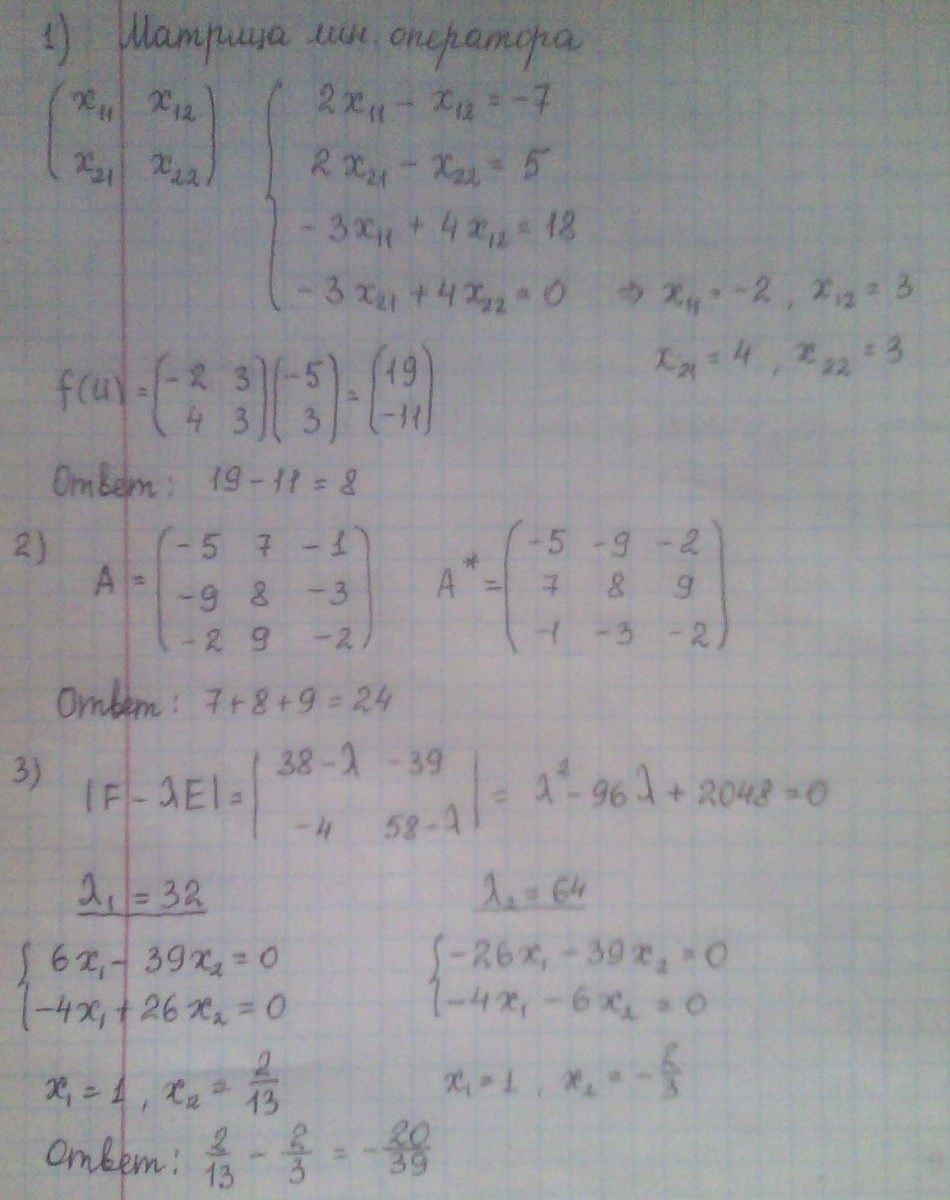 1) Матрица лин. оператора
(x₁₁ x₁₂ { 2x₁₁ - x₁₂ = -7
x₂₁ x₂₂) 2x₂₁ - x₂₂ = 5
-3x₁₁ + 4x₁₂ = 18
-3x₂₁ + 4x₂₂ = 0 ⇒ x₁₁ = -2, x₁₂ = 3
x₂₁ = 4, x₂₂ = 3
f(u) = (-2 3; 4 3)(-5; 3) = (19; -11)
Ответ: 19 - 11 = 8
2) A = (-5 7 -1; -9 8 -3; -2 9 -2) A* = (-5 -9 -2; 7 8 9; -1 -3 -2)
Ответ: 7 + 8 + 9 = 24
3) |F - λE| = |38-λ -39; -4 58-λ| = λ² - 96λ + 2048 = 0
λ₁ = 32 λ₂ = 64
{ 6x₁ - 39x₂ = 0 { -26x₁ - 39x₂ = 0
-4x₁ + 26x₂ = 0 -4x₁ - 6x₂ = 0
x₁ = 1, x₂ = 2/13 x₁ = 1, x₂ = -2/3
Ответ: 2/13 - 2/3 = -20/39